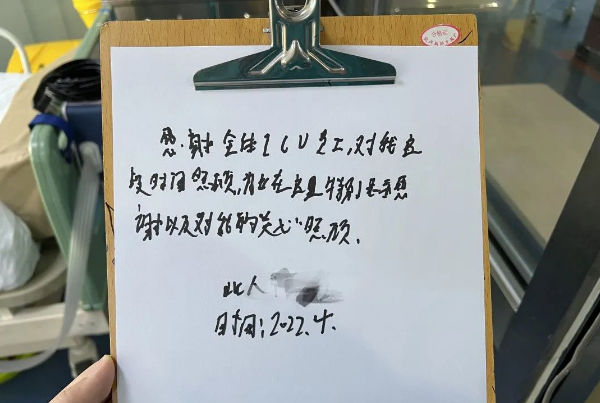 感谢全体ICU员工,对我这
段时间照顾,我在这里特别表示感
谢以及对我的关心照顾.
此人
时间:2022.4.